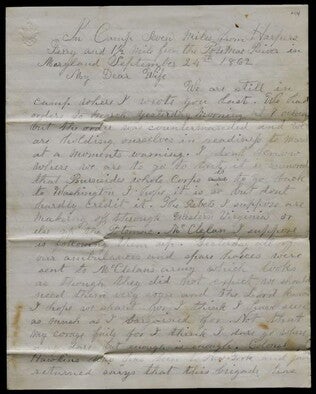 In Camp Seven Miles from Harpers
Ferry and 1½ Mile from the Potomac River in
Maryland September 24th 1862
My Dear Wife
We are still in
camp where I wrote you last. We had
orders to march yesterday morning at
but the order was countermanded and we
are holding ourselves in readiness to move
at a moments warning. I dont know
where we are to go to there is a rumor
that Burnsides whole Corps is to go back
to Washington I hope it is so but dont
hardly credit it. The Rebels I suppose are
making off through Western Virginia or
up the Potomac. McClelan I suppose
is following them up. Yesterday all of
our ambulances and spare horses were
sent to McClelans army which looks
as though they did not expect we should
need them very soon and the Lord knows
I hope we shant for I think I have seen
as much as I
my courage fails for I think I dare go where
any dare but enough is enough. Colonel
Hawkins has been to New York and
returned says that this brigade